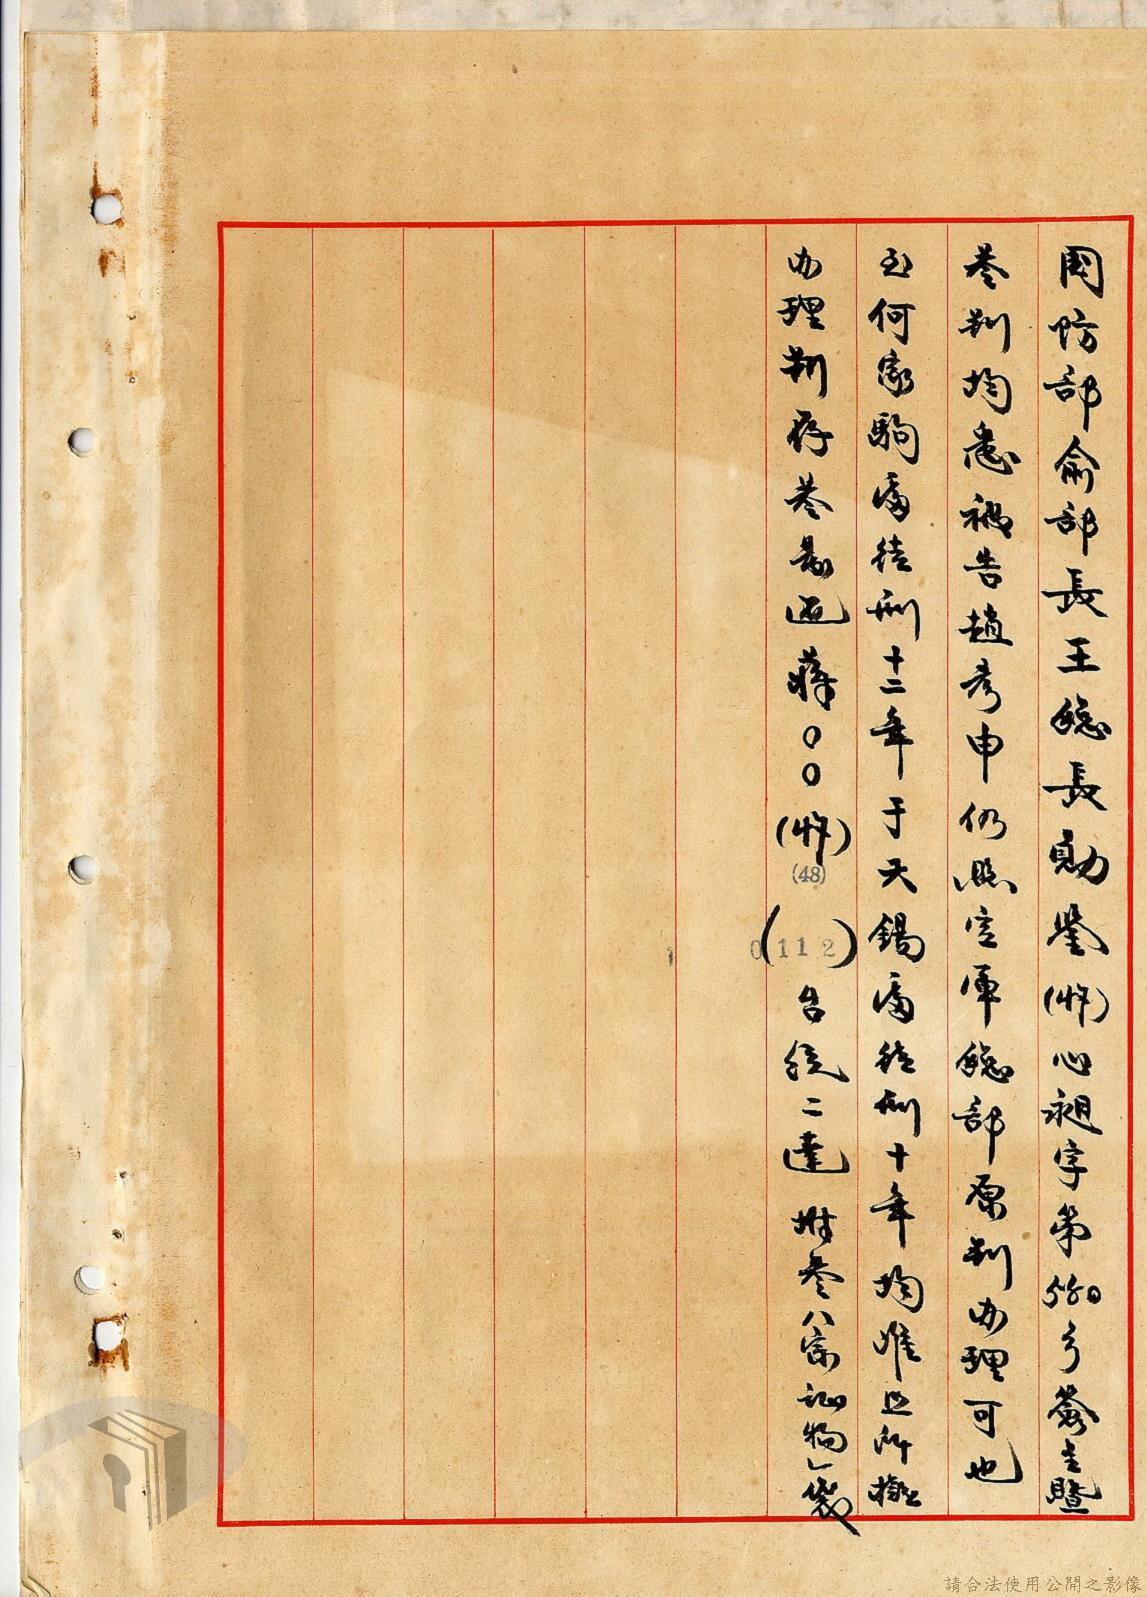 國防部俞部長王總長勛鑒(48)心昶字第580号簽呈暨
卷判均悉被告趙彥申仍照空軍總部原判办理可也
至何家駒處徒刑十二年于天錫處徒刑十年均准照所擬
办理判存卷發還蔣００( )(48)(112)台統二達 附卷八宗証物一袋
請合法使用公開之影像